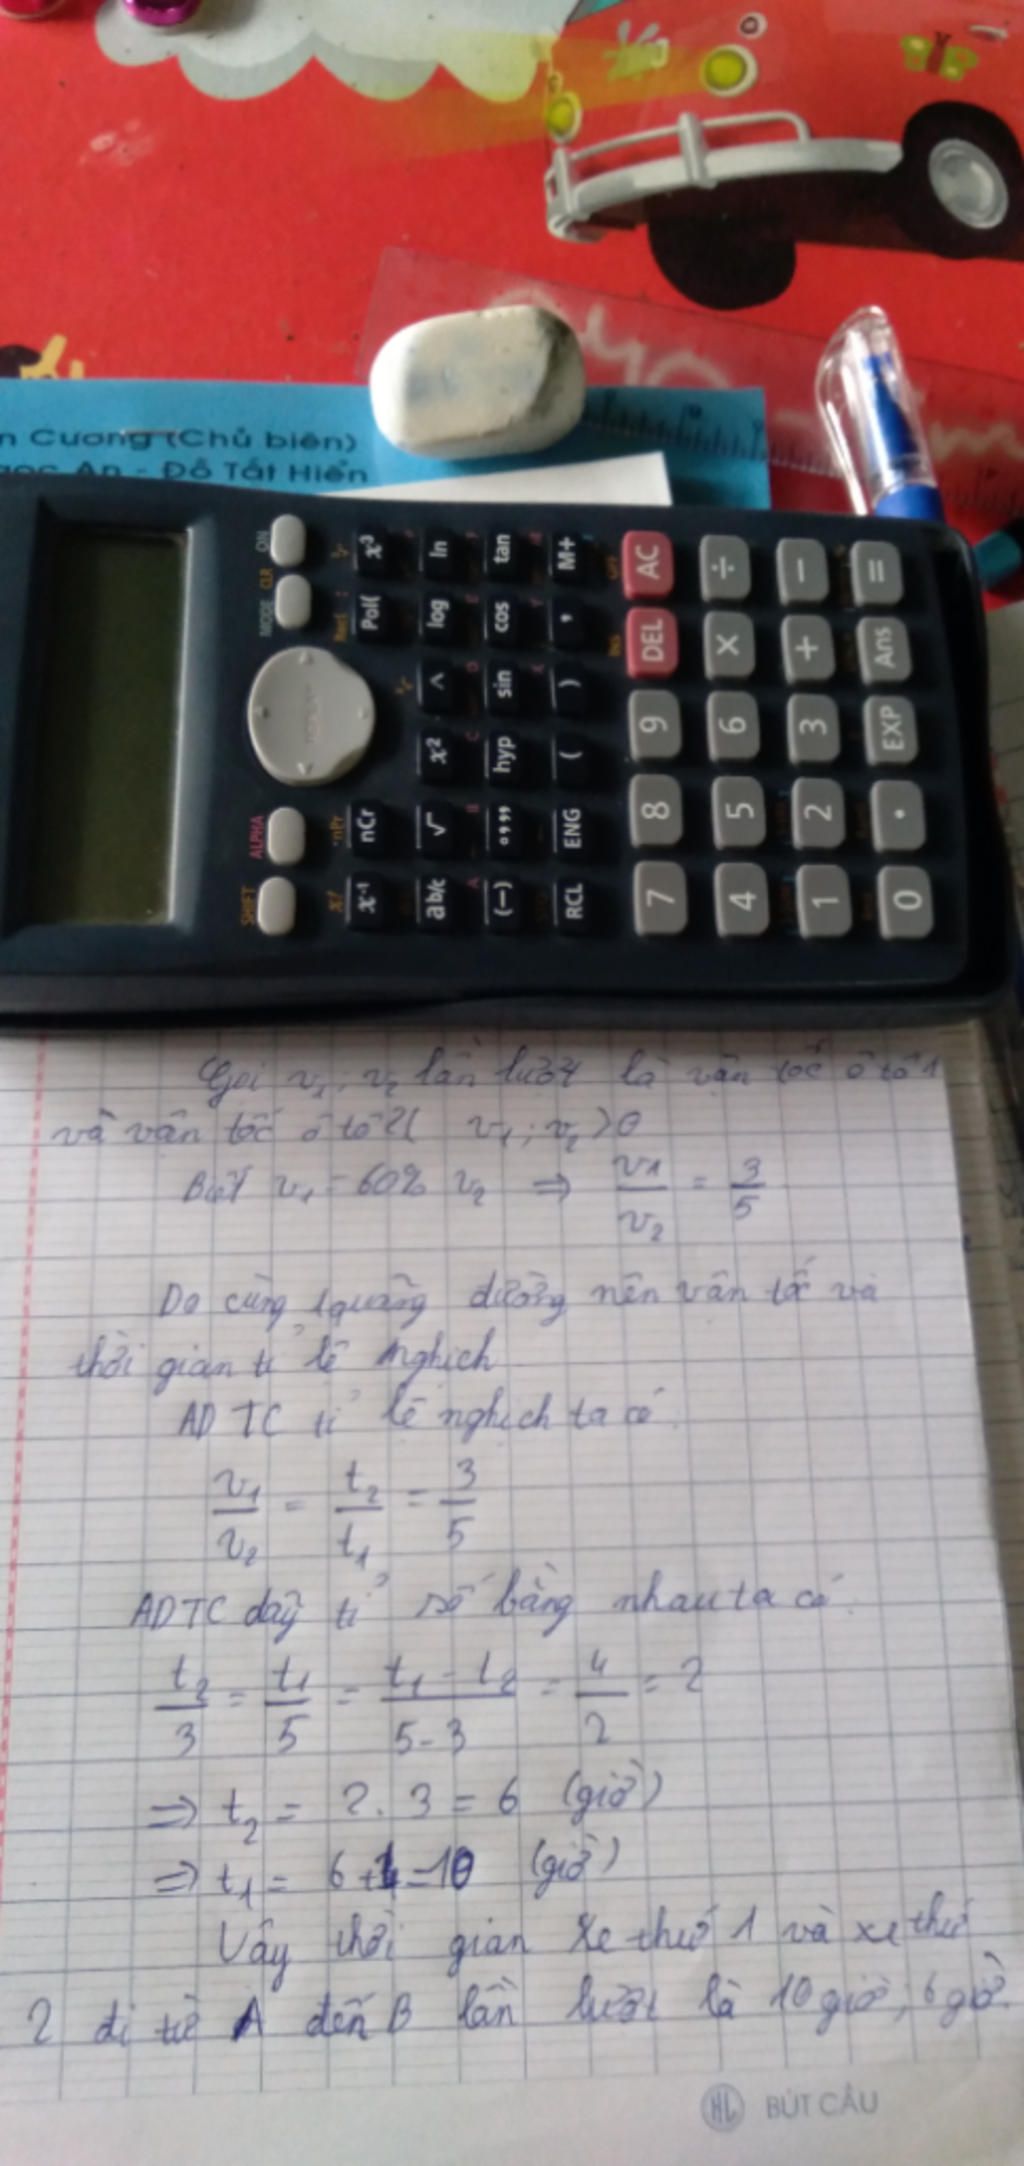 n Cương (Chủ biên)
gọc An - Đỗ Tất Hiển
SHIFT ALPHA MODE CLR ON
x! nPr Rec(
x⁻¹ nCr Pol( x³
ab/c √ x² ^ log ln
(−) °,,, hyp sin cos tan
RCL ENG ( ) , M+
7 8 9 DEL AC
4 5 6 × ÷
1 2 3 + −
0 . EXP Ans =
Gọi v₁; v₂ lần lượt là vận tốc ô tô 1
và vận tốc ô tô 2( v₁; v₂ >0
Biết v₁ = 60% v₂ ⇒ v₁/v₂ = 3/5
Do cùng 1 quãng đường nên vận tốc và
thời gian tỉ lệ nghịch
ADTC tỉ lệ nghịch ta có:
v₁/v₂ = t₂/t₁ = 3/5
ADTC dãy tỉ số bằng nhau ta có:
t₂/3 = t₁/5 = t₁ - t₂/5-3 = 4/2 = 2
⇒ t₂ = 2. 3 = 6 (giờ)
⇒ t₁ = 6+4=10 (giờ)
Vậy thời gian xe thứ 1 và xe thứ
2 đi từ A đến B lần lượt là 10 giờ; 6 giờ.
HL BÚT CẦU